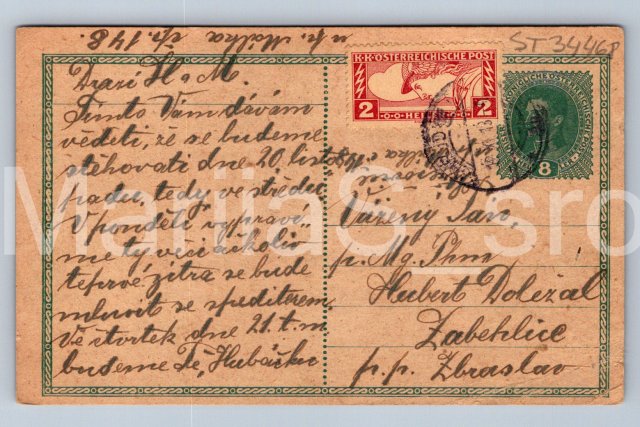 u p. Málka čp. 148.
ST 3446P
Drazí H a M.
Tímto Vám dávám
věděti, že se budeme
stěhovati dne 20. listo-
padu, tedy ve středu.
V pondělí vypraví-
me ty věci ačkoliv
teprvé zítra se bude
mluvit se speditérem
Ve čtvrtek dne 21. t. m.
budeme Tě, Hubáčku
K.K. ÖSTERREICHISCHE POST
2 HELLER 2
8
Vážený Pán,
p. Mg. Phm
Hubert Doležal
Zabehlice
p. p. Zbraslav
MarijaS_sro